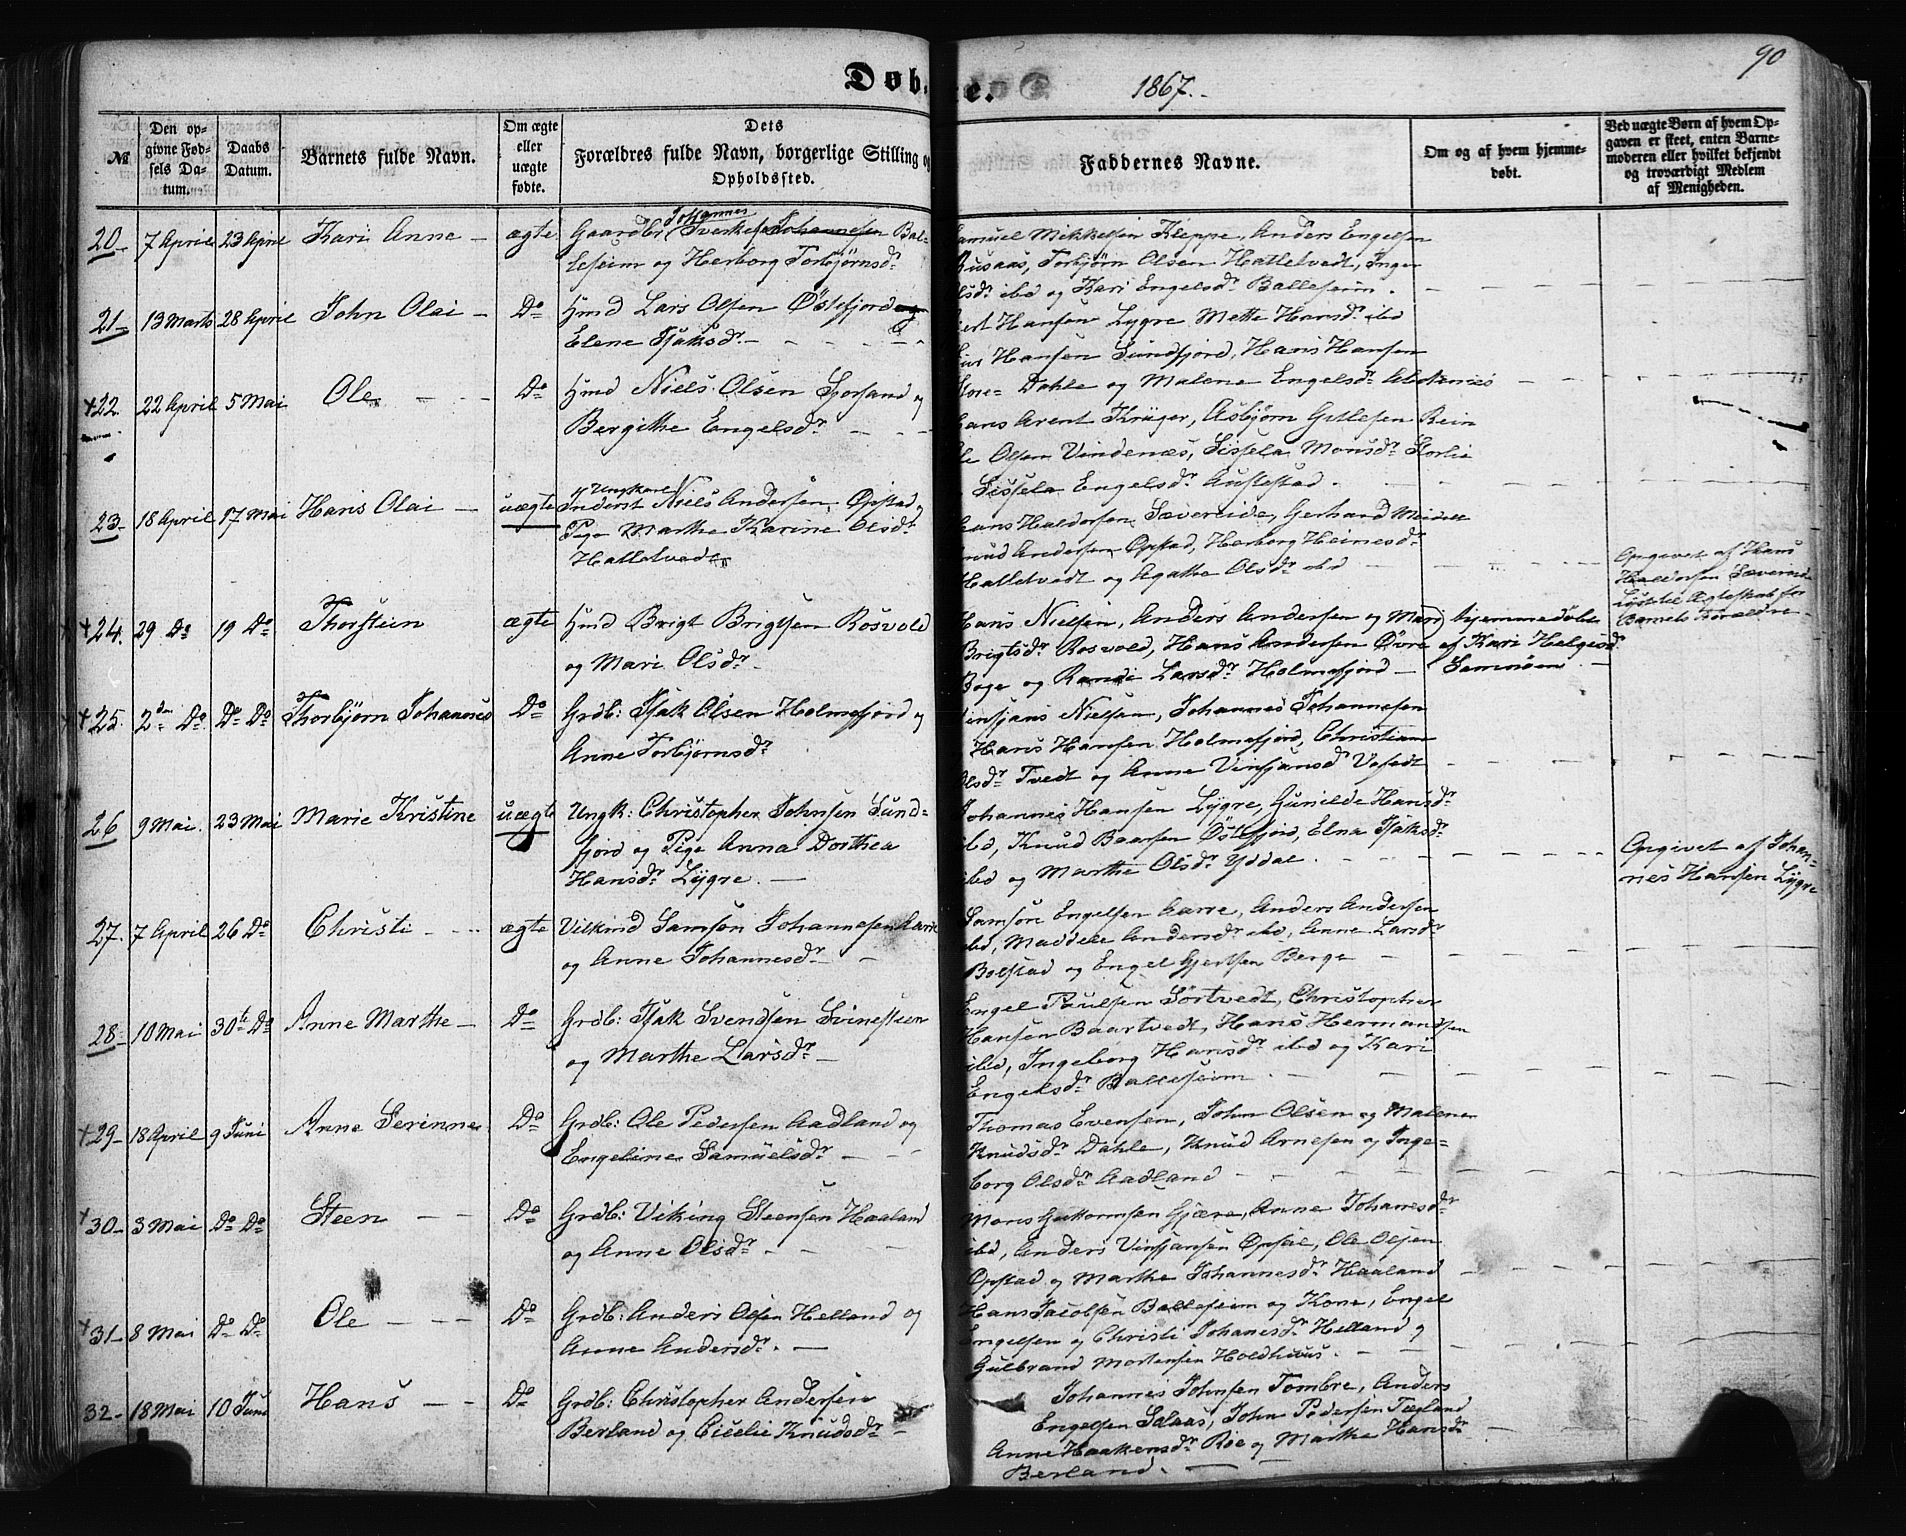 90
Døbte. 1867.
№
Den opgivne Fødsels Datum.
Daabs Datum.
Barnets fulde Navn.
Om ægte eller uægte fødte.
Dets Forældres fulde Navn, borgerlige Stilling og Opholdssted.
Faddernes Navne.
Om og af hvem hjemmedøbt.
Ved uægte Børn af hvem Opgaven er skeet, enten Barnemoderen eller hvilket bekjendt og troværdigt Medlem af Menigheden.
20 7 April 23 April Kari Anne ægte
Johannes
Gaardbr. Sverkesen Johannesen Bal-
leseim og Herborg Torbjørnsdr
Samuel Mikkelsen Kleppe, Anders Engelsen
Busaas, Torbjørn Olsen Hatletvedt, Inger
Olsdr ibd og Kari Engelsdr Balleseim.
21 13 Marts 28 April John Olai Do
Hmd Lars Olsen Østefjord og
Elene Isaksdr
Hansen Lygre Mette Hansdr ibd
Hansen Sundfjord, Hans Hansen
Dahle og Malene Engelsdr
+22 22 April 5 Mai Ole Do
Hmd Niels Olsen og
Bergithe Engelsdr
Hans Arent Krüger, Asbjørn Gitlesen Rein
Ole Olsen Vindenæs, Sissela Monsdr Storlie
Sissela Engelsdr Austestad
23 18 April 17 Mai Hans Olai uægte
Ungkarl
Inderst Niels Andersen Opstad og
Pige Marthe Karine Olsdr
Hatletvedt
Hans Haldorsen Sævereide, Gerhard Meidell
Knud Andersen Opstad, Herborg Heinesdr
Hatletvedt og Agathe Olsdr ibd
Opgivet af Hans
Haldorsen Sævereide
Lyst til Ægteskab for
Barnets Forældre
+24. 29 Do 19 Do Thorstein ægte
Hmd Brigt Brigtsen Rosvold
og Mari Olsdr
Hans Nielsen, Anders Andersen og Mari
Brigtsdr Rosvold, Hans Andersen Øvre
Boge og Randi Larsdr Holmefjord
hjemmedøbt
af Kari Helgesdr
Samnøen
+25. 2den Do. Do Do Thorbjørn Johannes Do
Grdb: Isak Olsen Holmefjord og
Anne Torbjørnsdr
Vinsjans Nielsen, Johannes Johannesen
Hans Hansen Holmefjord, Christiane
Olsdr Tvedt og Anne Vinsjansd
26 9 Mai. 23 Mai Marie Kristine uægte
Ungk: Christopher Johnsen Sund-
fjord og Pige Anna Dorthea
Hansdr Lygre.
Johannes Hansen Lygre, Gunilde Hansdr
ibd, Knud Baarsen Østefjord, Elna Isaksdr
ibd og Marthe Olsdr Yddal.
Opgivet af Johan-
nes Hansen Lygre
27. 7 April 26 Do Christi ægte
Vilkind Samson Johannesen Aarre
og Anne Johannesdr
Samson Engelsen Aarre, Anders Andersen
ibd, Maddele Andersdr ibd, Anne Larsdr
Bolstad og Engel Gjertsen Berge
28 10 Mai 30te Do Anne Marthe Do
Grdb: Isak Svendsen Svinestien
og Marthe Larsdr
Engel Paulsen Sörtvedt, Christopher
Hansen Baartvedt, Hans Hermandsen
ibd, Ingeborg Hansdr ibd og Kari
Engelsdr Balleseim
+29 18 April 9 Juni Anne Serinne Do
Grdb: Ole Pedersen Aadland og
Engeline Samuelsdr
Thomas Evensen, John Olsen og Malene
Knudsdr Dahle, Knud Arnesen og Inge-
borg Olsdr Aadland
+30 3 Mai Do Do Steen Do
Grdb: Viking Steensen Haaland
og Anne Olsdr
Mons Guttormsen Gjære, Anne Johanesdr
ibd, Anders Vinsjansen Opsal, Ole Olsen
Opstad og Marthe Johannesdr Haaland
+31 8 Mai Do Do Ole Do
Grdb: Anders Olsen Helland og
Anne Andersdr.
Hans Jacobsen Balleseim og Kone, Engel
Engelsen og Christi Johanesdr Helland og
Gulbrand Mortensen Holdhuus.
32 18 Mai 10 Juni Hans Do
Grdb: Christopher Andersen
Berland og Cicelie Knudsdr
Johannes Johnsen Tombre, Anders
Engelsen Solaas, John Pedersen Tøgland
Anne Haakensdr Roe og Marthe Hansdr
Berland.